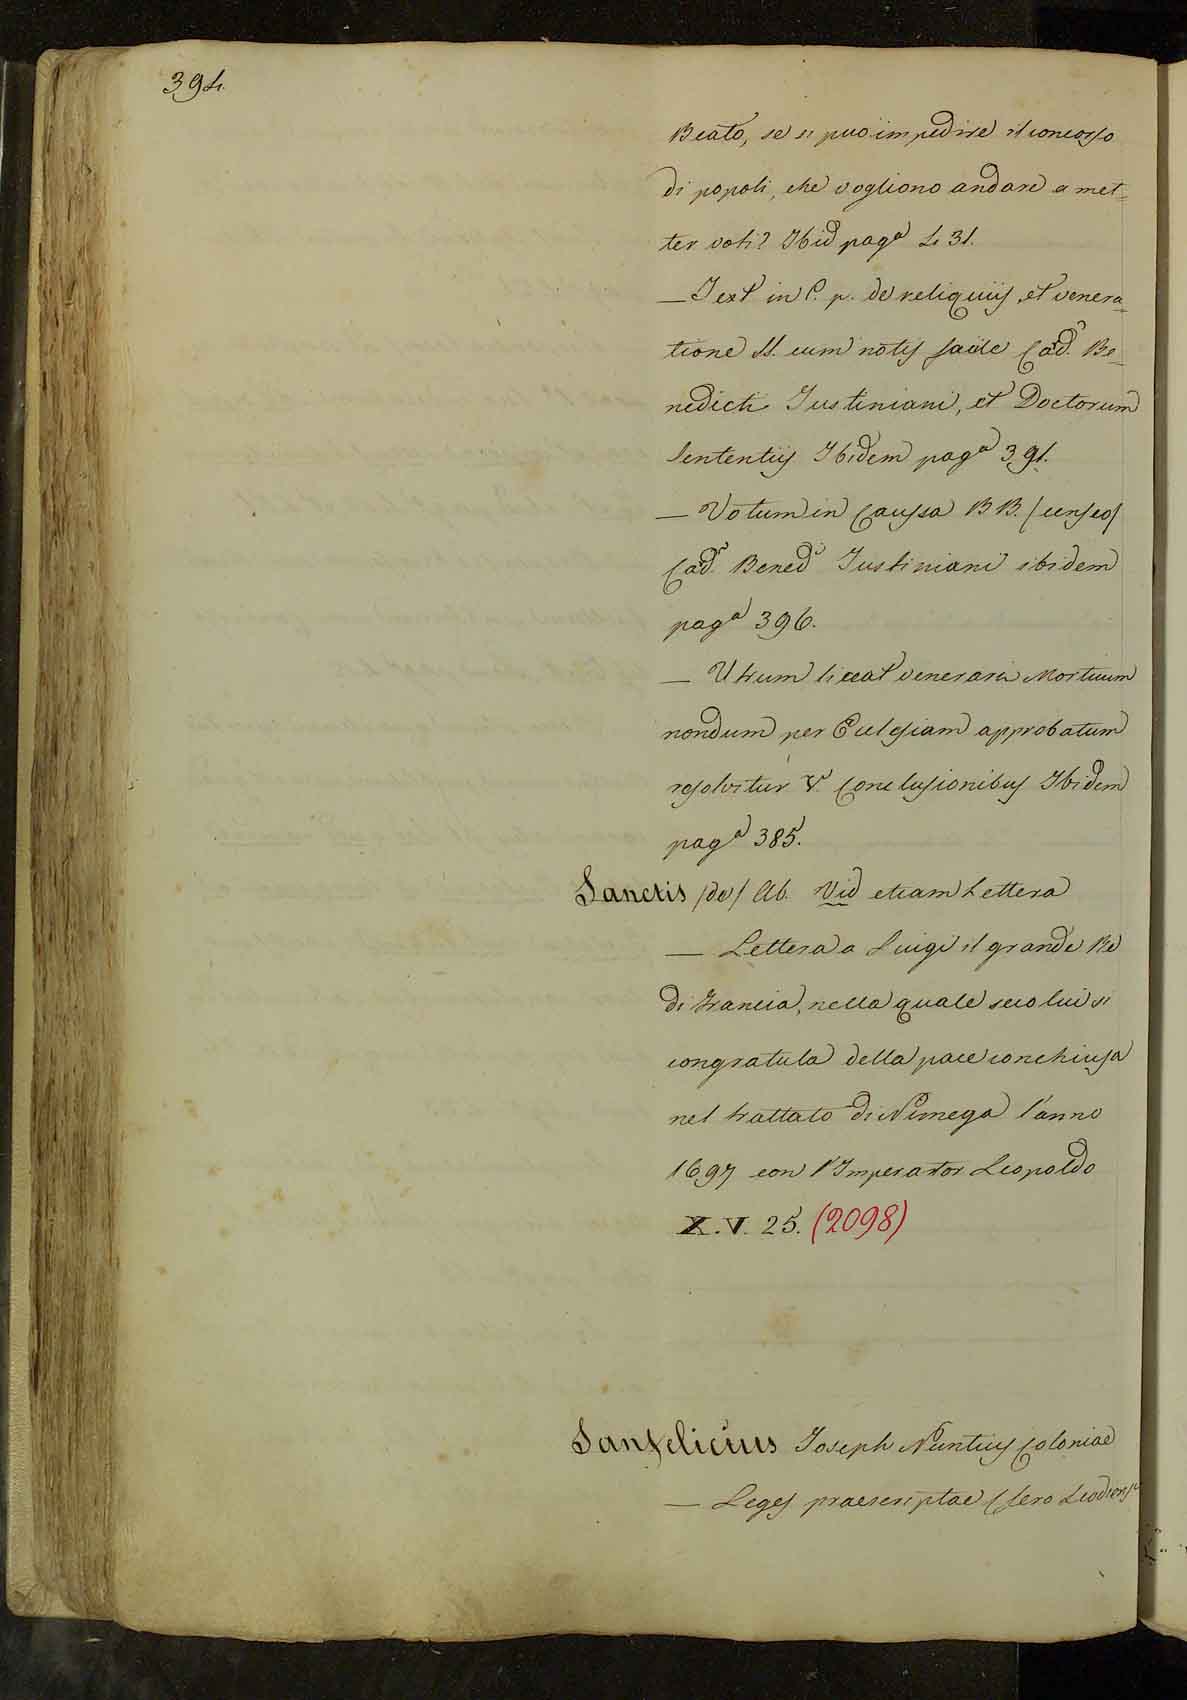 394.
Beato, se si può impedire il concorso
di popoli, che vogliono andare a met=
ter voti? Ibid pagª 431.
— Text in C. p. de reliquiis, et venera=
tione SS. cum notis Card. Be=
nedicti Iustiniani, et Doctorum
Sententiis Ibidem pagª 391.
— Votum in Caussa BB. /censeo/
Card. Bened. Iustiniani ibidem
pagª 396.
— Utrum liceat venerari Mortuum
nondum per Ecclesiam approbatum
resolvitur V. Conclusionibus Ibidem
pagª 385.
Sanctis /de/ Ab. Vid etiam Lettera
— Lettera a Luigi il grande Re
di Francia, nella quale seco lui si
congratula della pace conchiusa
nel trattato di Nimega l'anno
1697 con l'Imperator Leopoldo
X.V. 25. (2098)
Sanfelicius Joseph Nuntius Coloniae
— Leges praescriptae Clero Leodiensi